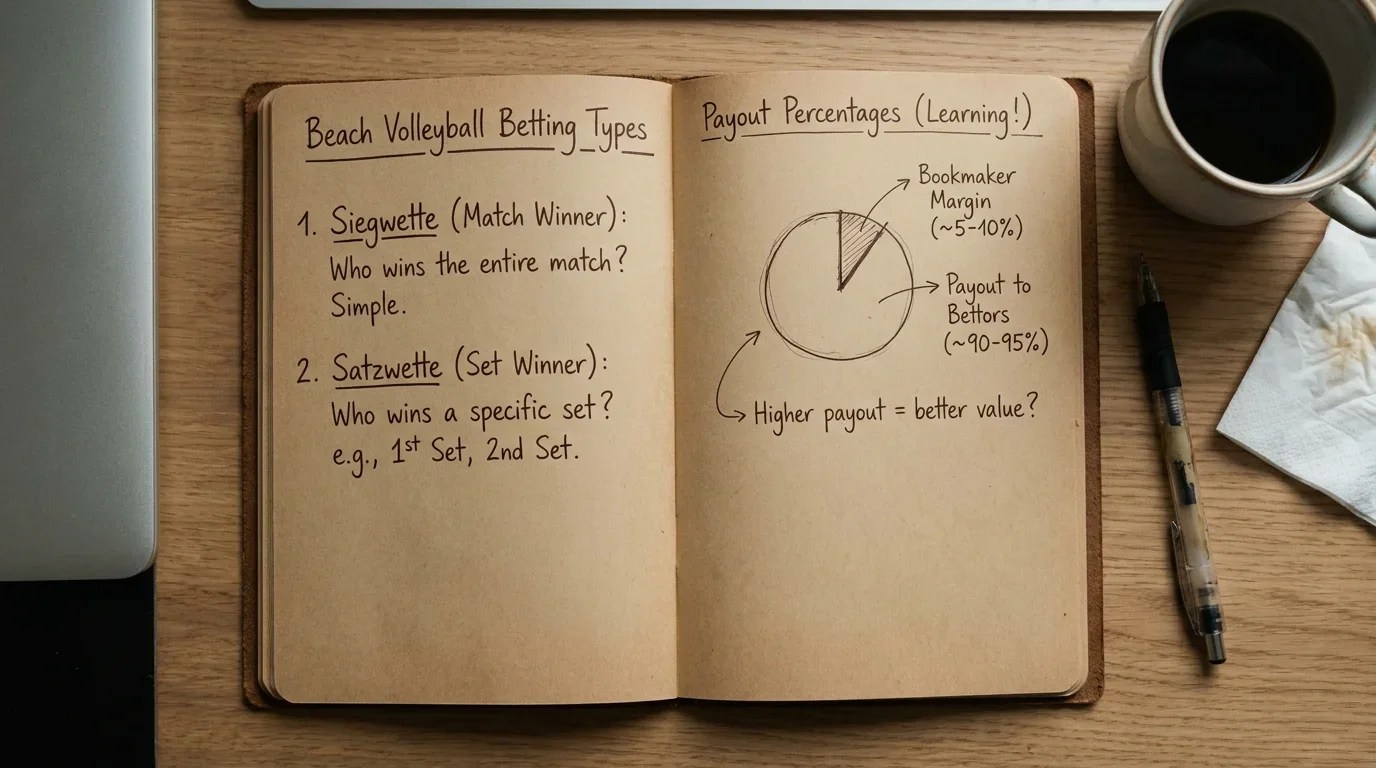 Beach Volleyball Betting Types
1. Siegwette (Match Winner):
Who wins the entire match?
Simple.
2. Satzwette (Set Winner):
Who wins a specific set?
e.g., 1st Set, 2nd Set.
Payout Percentages (Learning!)
Bookmaker
Margin
(~5-10%)
Payout to
Bettors
(~90-95%)
Higher payout = better value?